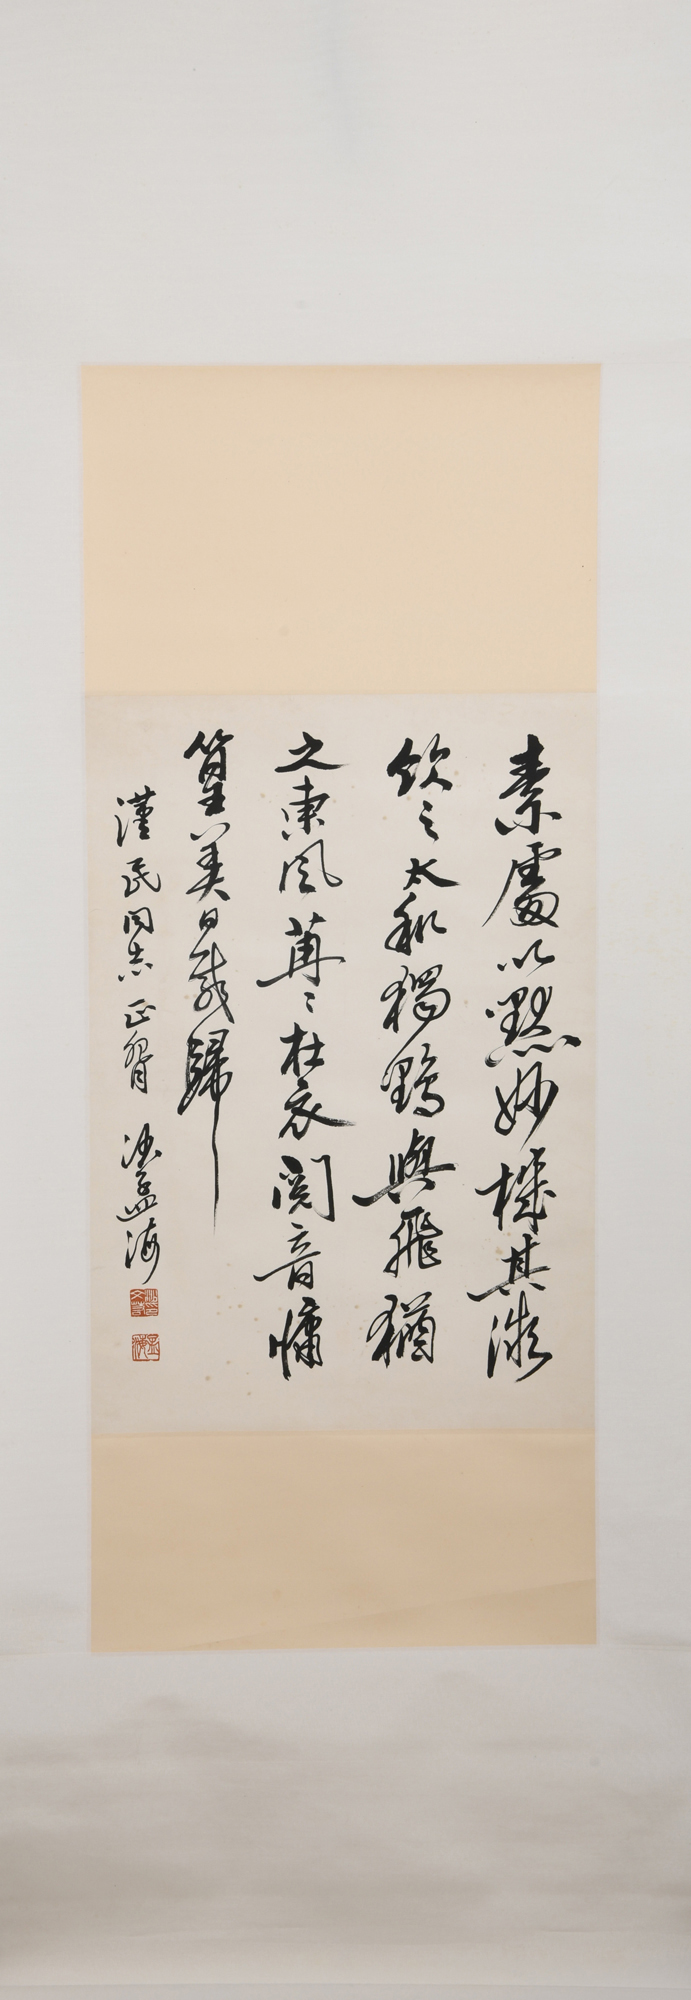 素處以默妙機其微
飲之太和獨鶴與飛猶
之惠風苒〻在衣閱音脩
篁美曰載歸
漢民同志正 沙孟海
孟海